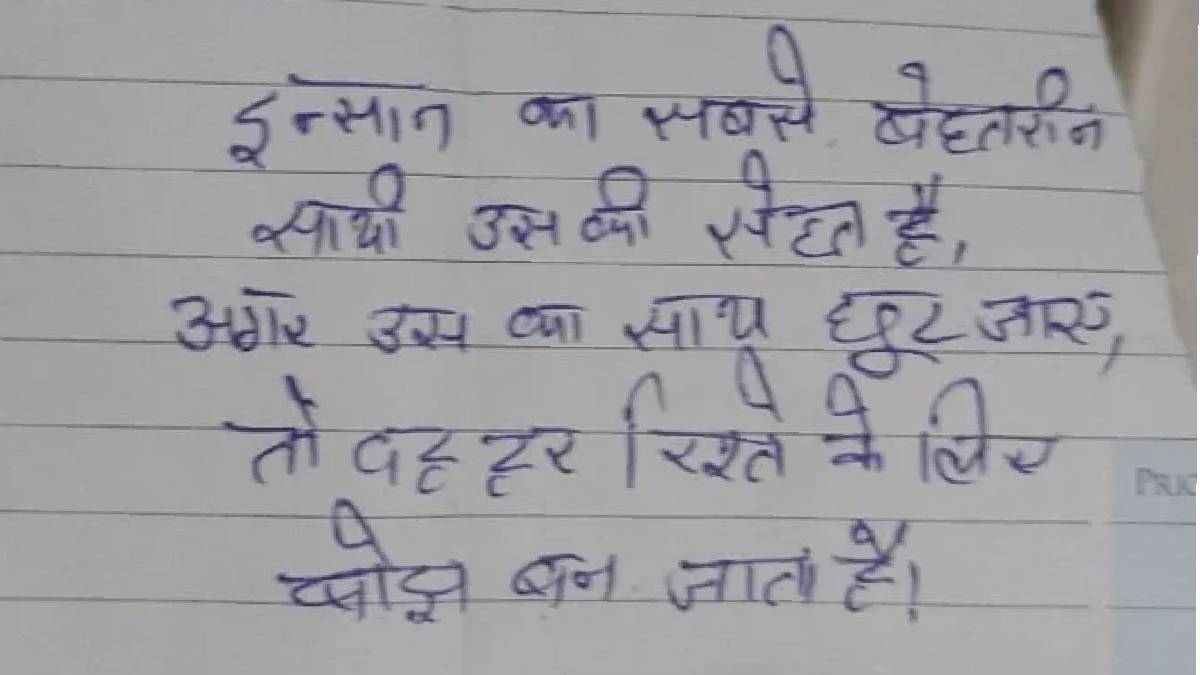 इन्सान का सबसे बेहतरीन
साथी उस की सेहत है,
अगर उस का साथ छूट जाए,
तो वह हर रिश्ते के लिए
बोझ बन जाता है।
PRIC